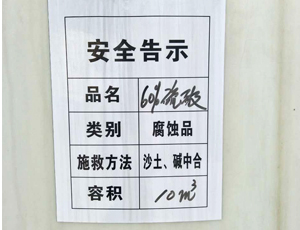 安全告示
品名 60%硫酸
类别 腐蚀品
施救方法 沙土、碱中合
容积 10m³